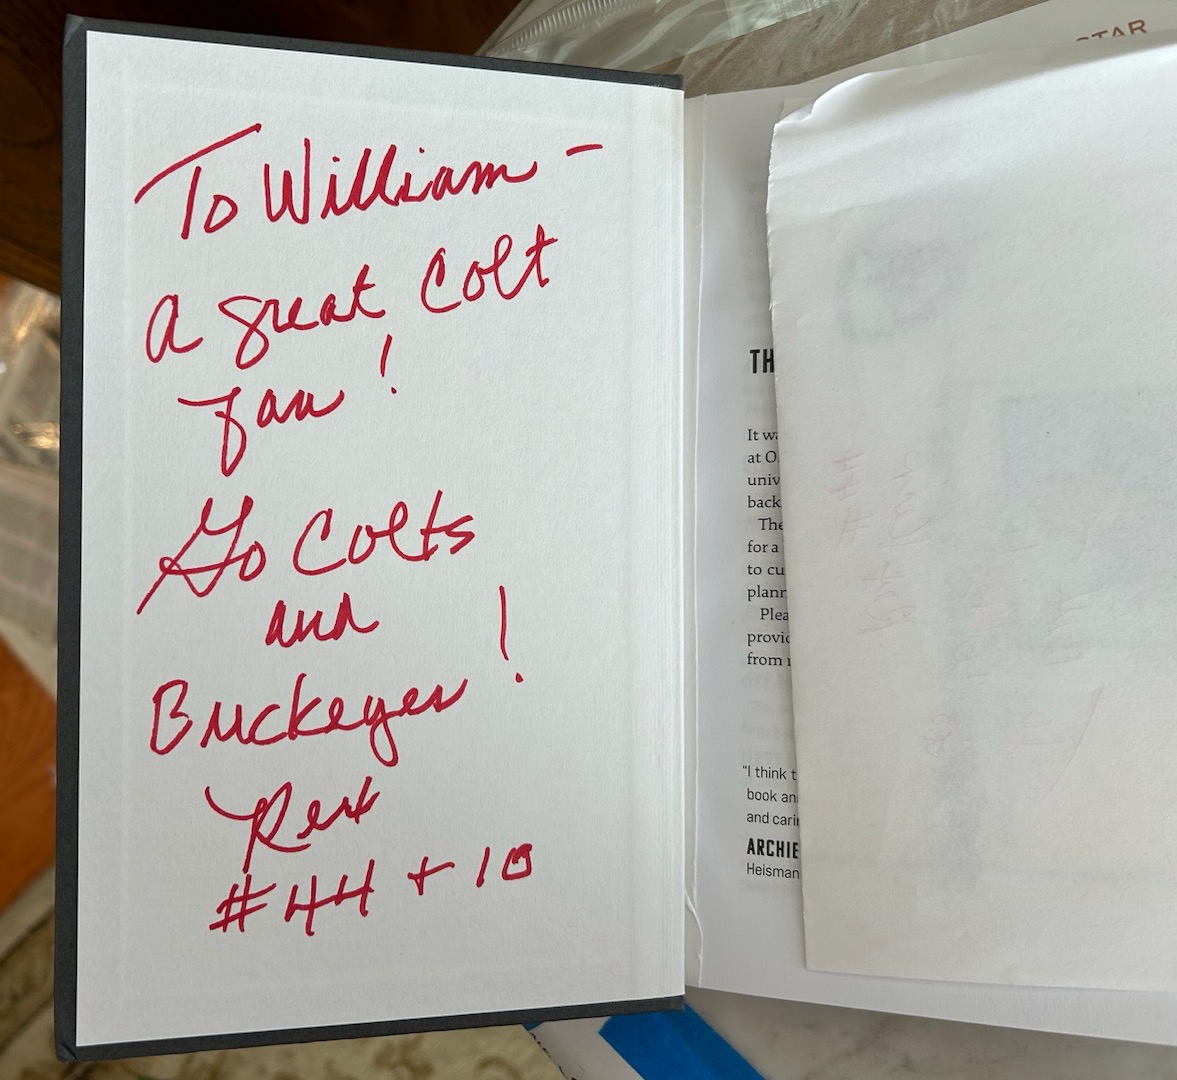 To William -
a great Colt
fan!
Go Colts
and
Buckeyes!
Rex
#44 + 10
STAR
TH
It wa
at O
univ
back
The
for a
to cu
plann
Plea
provid
from
"I think t
book an
and carin
ARCHIE
Heisman